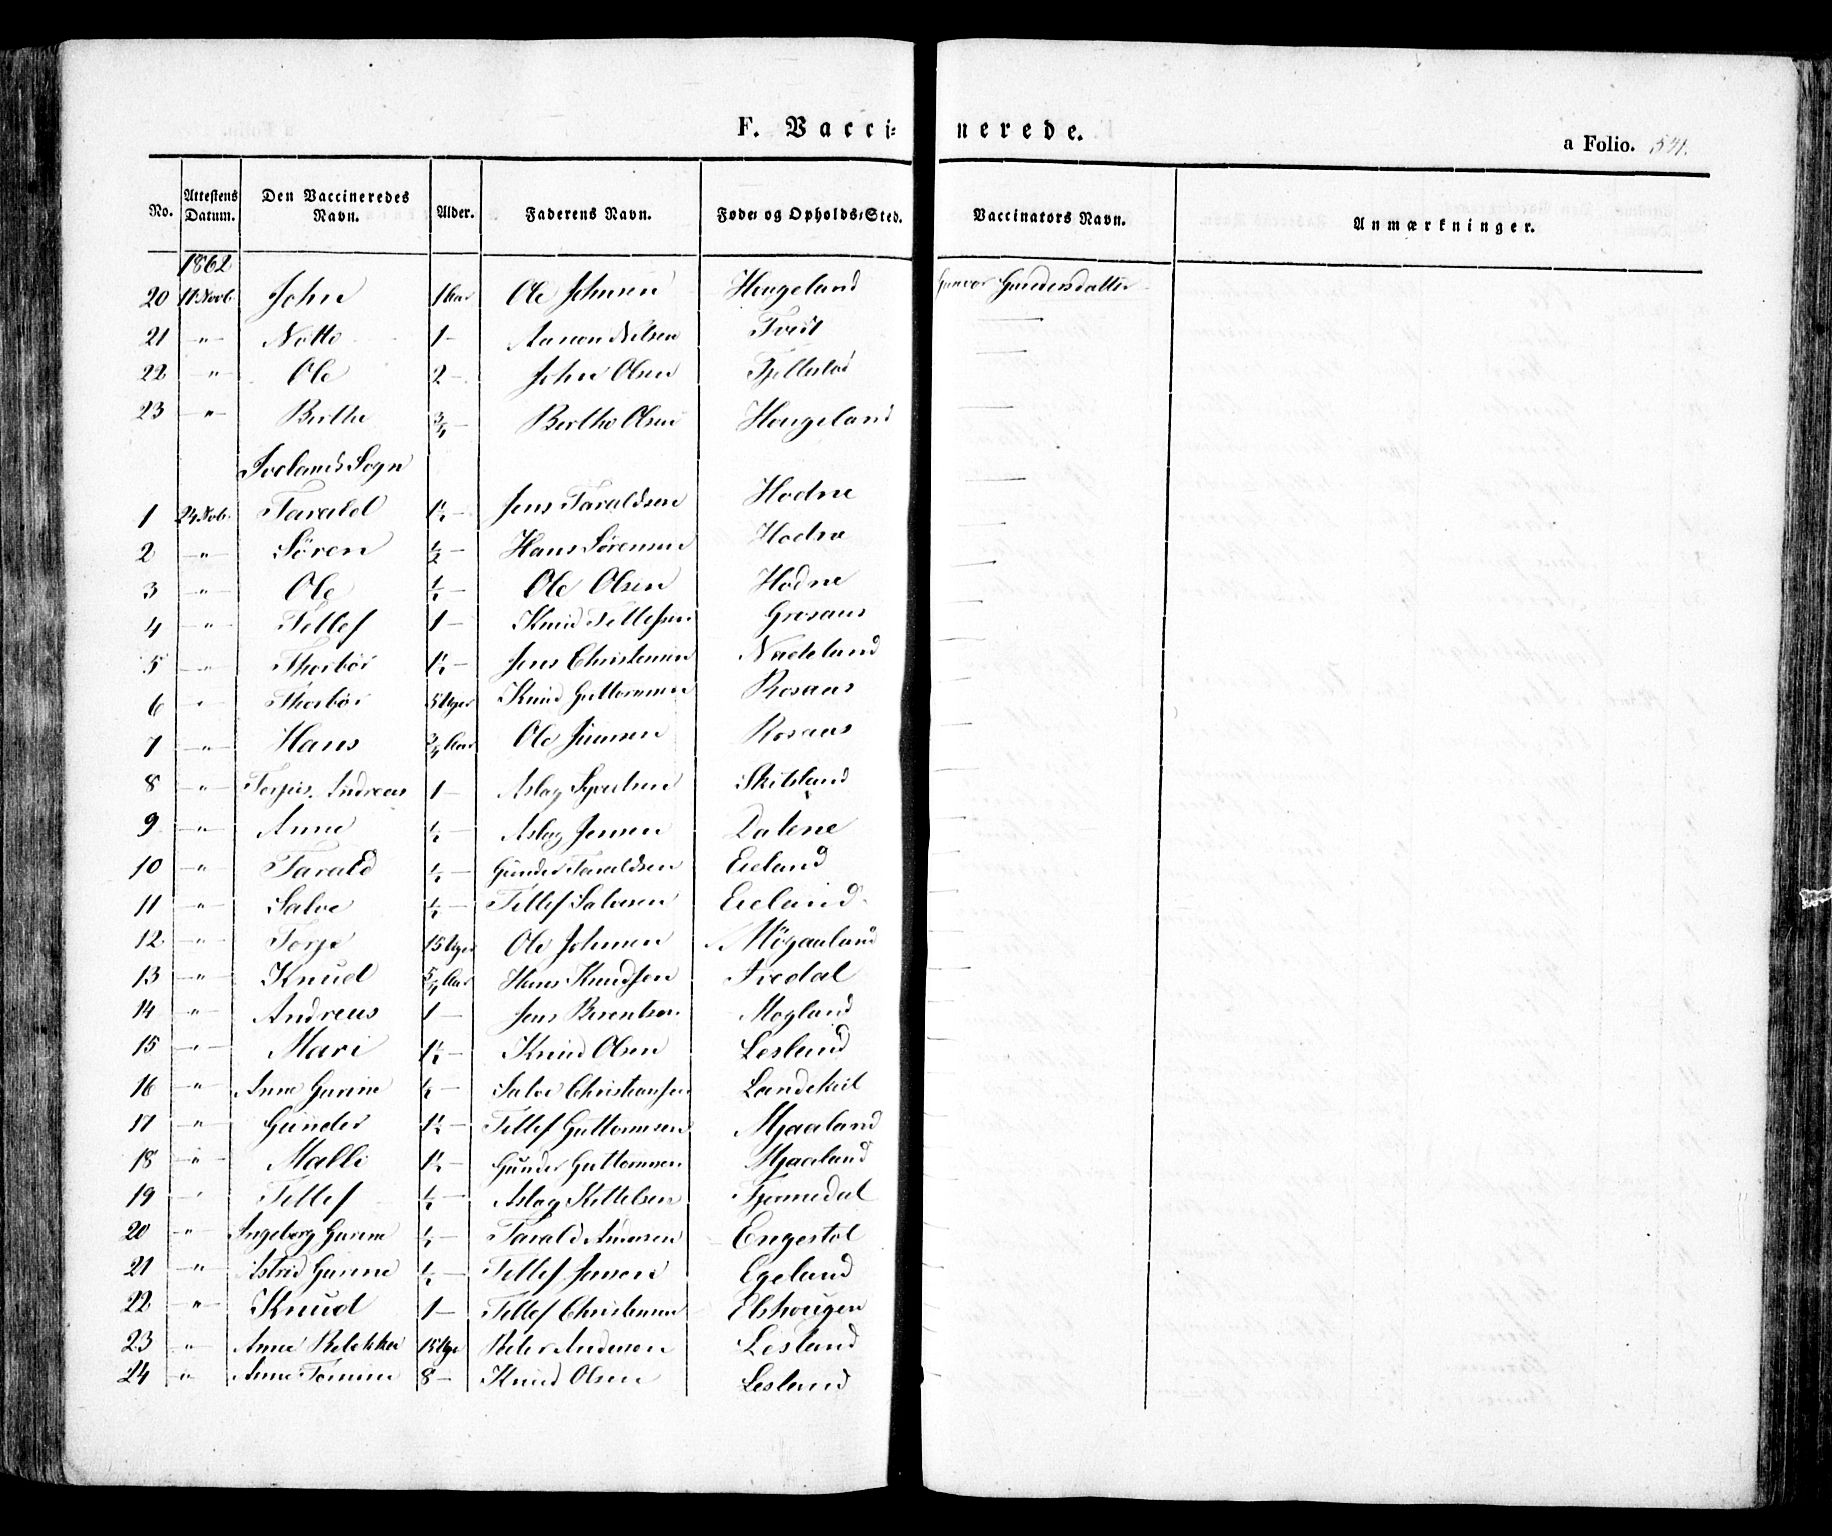 F. Vaccinerede.
a Folio. 521.
No. Attestens Datum. Den Vaccineredes Navn. Alder. Faderens Navn. Føde- og Opholds-Sted. Vaccinators Navn. Anmærkninger.
1862
20 11 Novb. John 1 Aar Ole Johnsen Hougeland Gunvor Gundersdatter
21 " Notto 1 - Aanon Nilsen Tveit —
22 " Ole 2 - John Olsen Fjellestad —
23 " Berthe 3/4 - Berthe Olsen Hougeland —
Ivelands Sogn
1 24 Nob. Tarald 1½ - Jens Taraldsen Hodne —
2 " Sören ½ - Hans Sörensen Hodne —
3 " Ole ½ - Ole Olsen Hodne —
4 " Tellef 1 - Knud Tellefsen Grosaas —
5 " Thorbör 1½ - Jens Christensen Nadeland —
6 " Thorbör 5 Uger Knud Guttormsen Rosaas —
7 " Hans 3/4 Aar Ole Jensen Rosaas —
8 " Terjus. Andreas 1 - Aslag Syvertsen Skitsland —
9 " Anne ½ - Aslag Jensen Dalene —
10 " Tarald ½ - Gunder Taraldsen Eieland —
11 " Salve ½ - Tellef Salvesen Eieland —
12 " Terje 15 Uger Ole Johnsen —
13 " Knud 5/4 Aar Hans Knudsen Ivedal —
14 " Andreas 1 - Jens Berentsen Mogland —
15 " Mari 1½ - Knud Olsen Lesland —
16 " Anne Gurine ½ - Salve Christiansen Landekil —
17 " Gunder 1½ - Tellef Guttormsen Mjaaland —
18 " Malli 1½ - Gunder Guttormsen Mjaaland —
19 " Tellef ½ - Aslag Kittelsen Fjermedal —
20 " Ingeborg Gurine ½ - Tarald Andersen Engestøl —
21 " Astrid Gurine ½ - Tellef Jensen Egeland —
22 " Knud 1 - Tellef Christensen Elshougen —
23 " Anne Rebekka 15 Uger Peder Andersen Lesland —
24 " Anne Tomine 8 - Knud Olsen Lesland